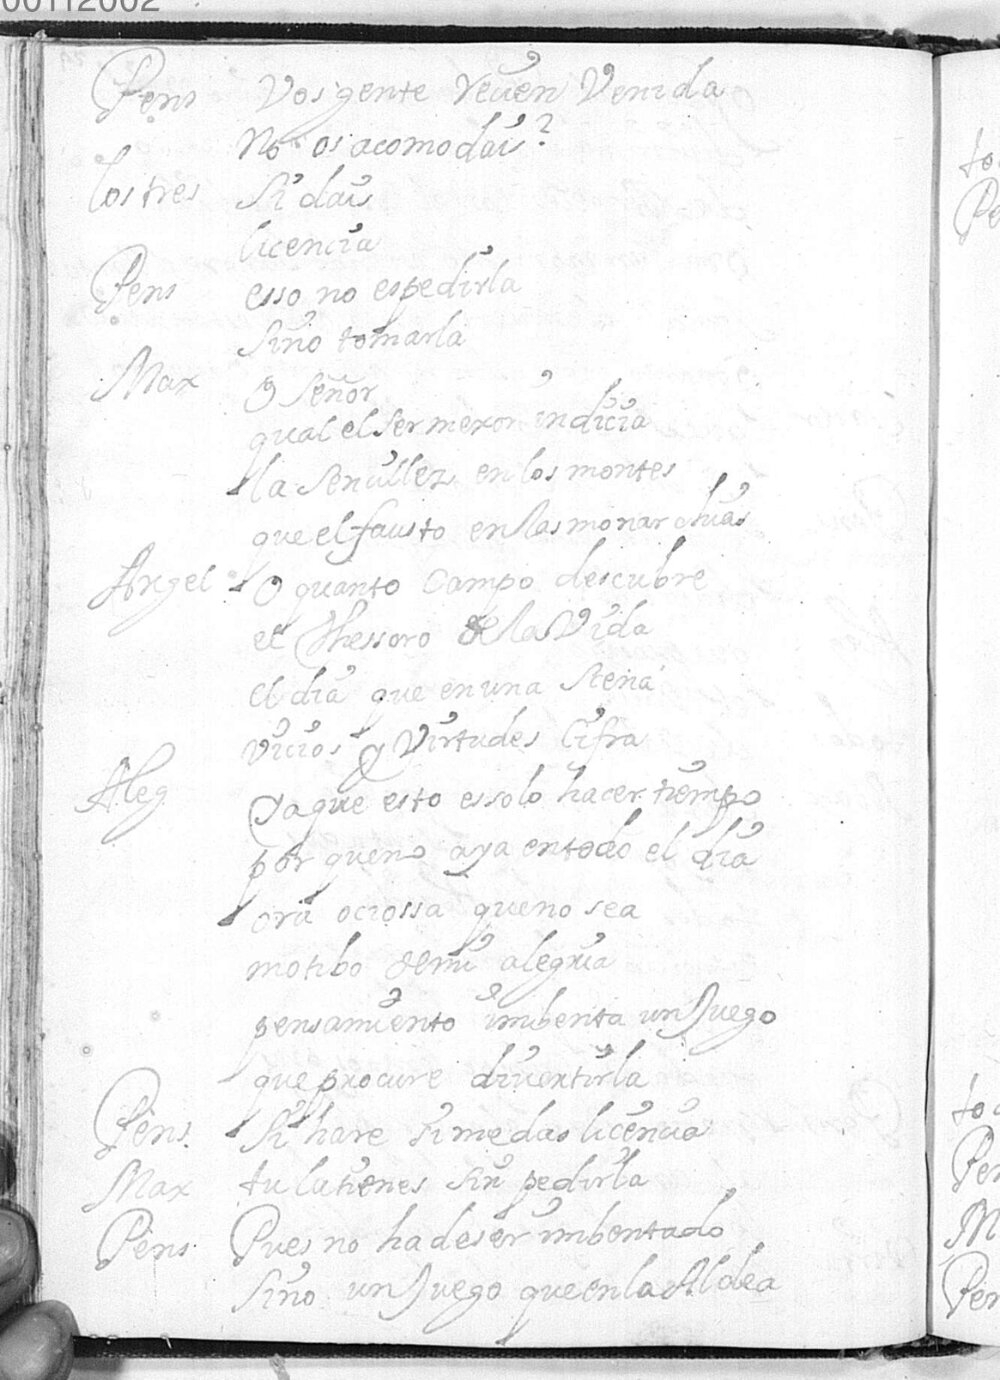 00112002
Pens Vos gente reuen Venida
No os acomodais?
los tres Si dais
licencia
Pens esso no es pedirla
Sino tomarla
Max O Señor
qual el ser mexor indicia
la sencillez en los montes
que el fausto en las monarchias
Angel O quanto Campo descubre
el Thessoro de la Vida
el dia que en una Scena
Vicios y Virtudes Cifra
Aleg Ya que esto es solo hacer tiempo
por que no aya en todo el dia
ora ociossa que no sea
motibo de mi alegria
pensamiento imbenta un Juego
que procure divertirla
Pens. Si hare si me das licencia
Max tu la tienes sin pedirla
Pens. Pues no ha de ser imbentado
Sino un Juego que en la Aldea
to
Pe
to
Per
M
Per